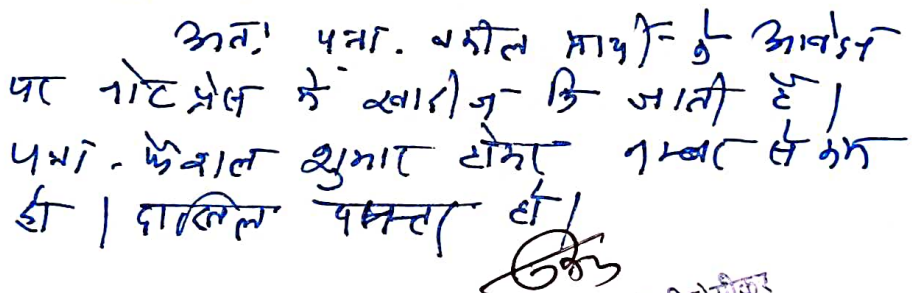 अतः पत्रा. वकील प्रार्थी के आवेदन
पर नोट प्रेस मे खारीज कि जाती है।
पत्रा. फैशल शुमार होकर नम्बर से कम
हो। दाखिल दफ्तर हो।